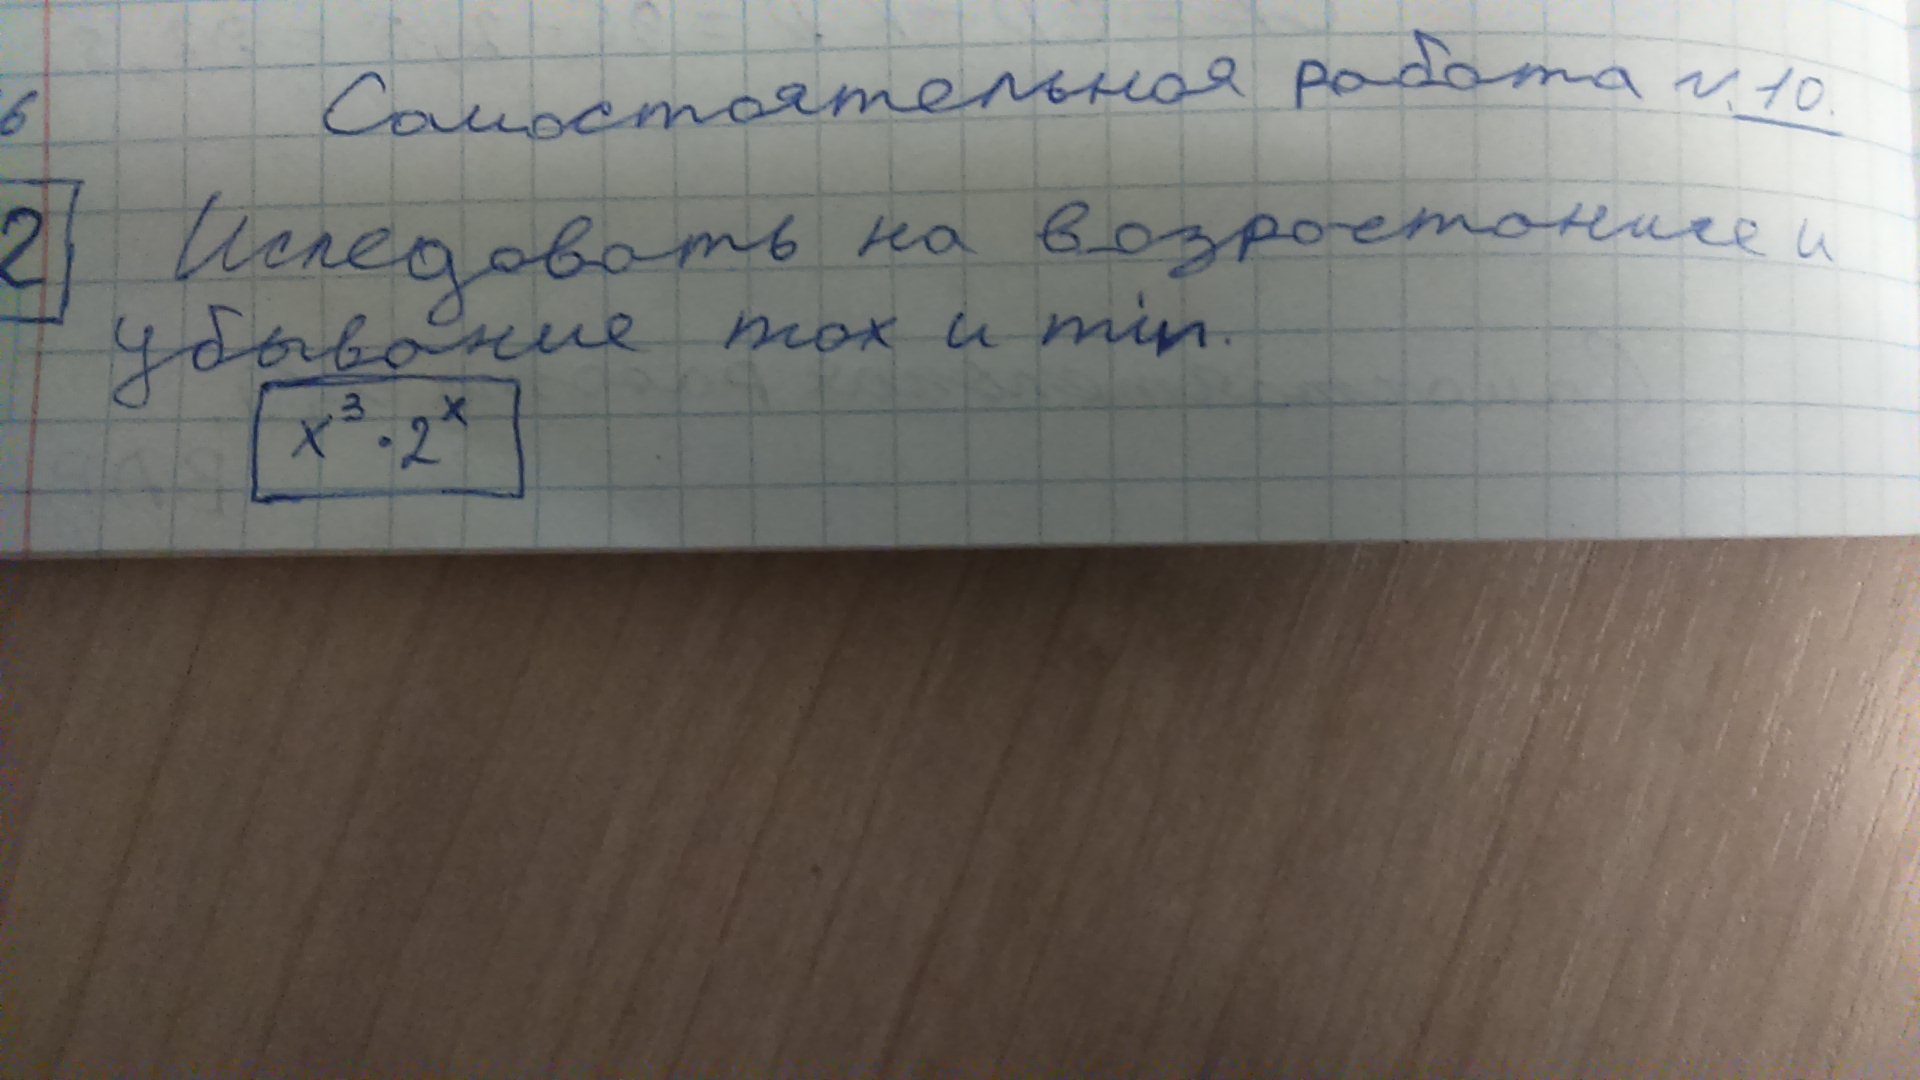 6
Самостоятельная работа N.10.
2 Иследовать на возростание и
убывание max и min.
x³·2ˣ